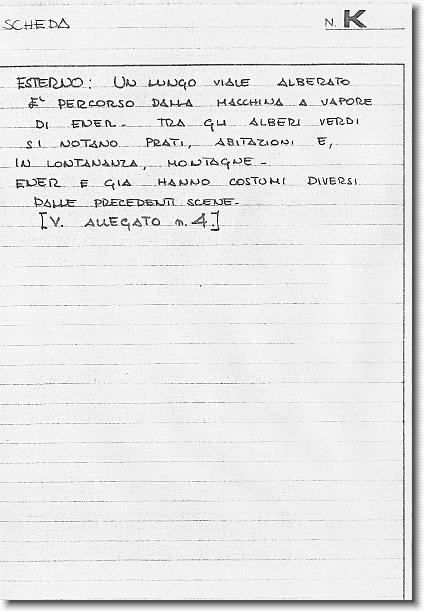 SCHEDA N. K
ESTERNO: UN LUNGO VIALE ALBERATO
E' PERCORSO DALLA MACCHINA A VAPORE
DI ENER. TRA GLI ALBERI VERDI
SI NOTANO PRATI, ABITAZIONI E,
IN LONTANANZA, MONTAGNE.
ENER E GIA HANNO COSTUMI DIVERSI
DALLE PRECEDENTI SCENE.
[V. ALLEGATO n. 4.]